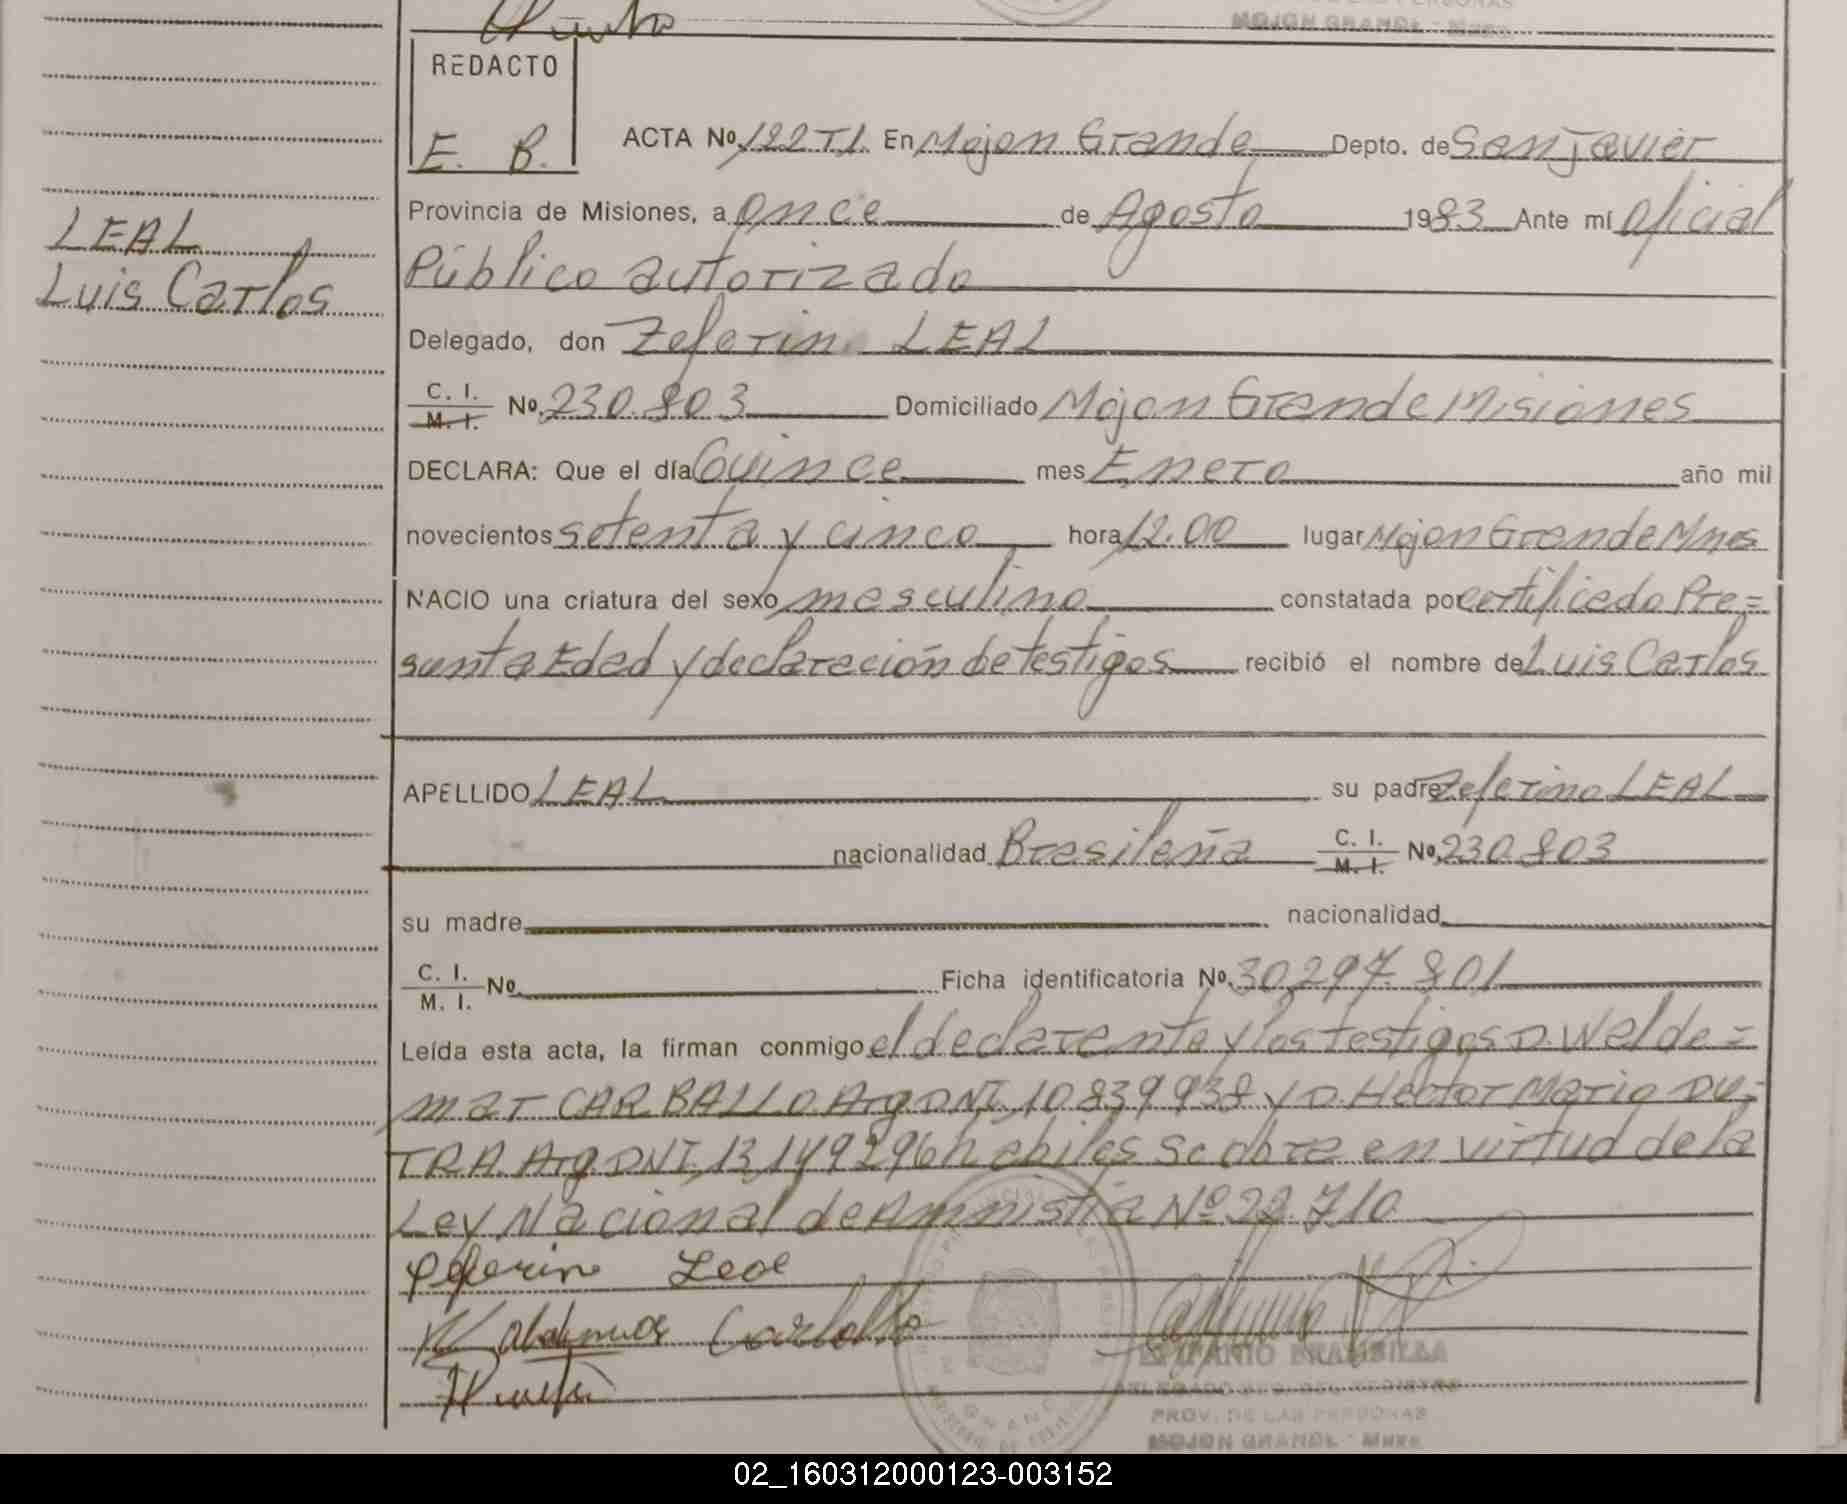 MOJON GRANDE - Mnes.
REDACTO
E. B.
ACTA Nº 122 T1. En Mojon Grande Depto. de San Javier
Provincia de Misiones, a once de Agosto 1983 Ante mí oficial
Público autorizado
LEAL
Luis Carlos
Delegado, don Zeferino LEAL
C. I. M. I. Nº 230.803 Domiciliado Mojon Grande Misiones
DECLARA: Que el día Quince mes Enero año mil
novecientos setenta y cinco hora 12.00 lugar Mojon Grande Mnes
NACIO una criatura del sexo masculino constatada por certificado Pre=
sunta Edad y declaración de testigos recibió el nombre de Luis Carlos
APELLIDO LEAL su padre Zeferino LEAL
nacionalidad Brasileña C. I. M. I. Nº 230.803
su madre nacionalidad
C. I. M. I. Nº Ficha identificatoria Nº 30.297.801
Leída esta acta, la firman conmigo el declarente y los testigos D. Walde=
mar CARBALLO Arg DNI. 10.839.938 y D. Hector Mario DU=
TRA Arg DNI. 13.149.296 habiles se obra en virtud de la
Ley Nacional de Amnistia Nº 22.710
Zeferino Leal
Waldemar Carballo
EPIFANIO BRAMBILLA
DELEGADO SEC. DEL REGISTRO
PROV. DE LAS PERSONAS
MOJON GRANDE - Mnes.
02_160312000123-003152